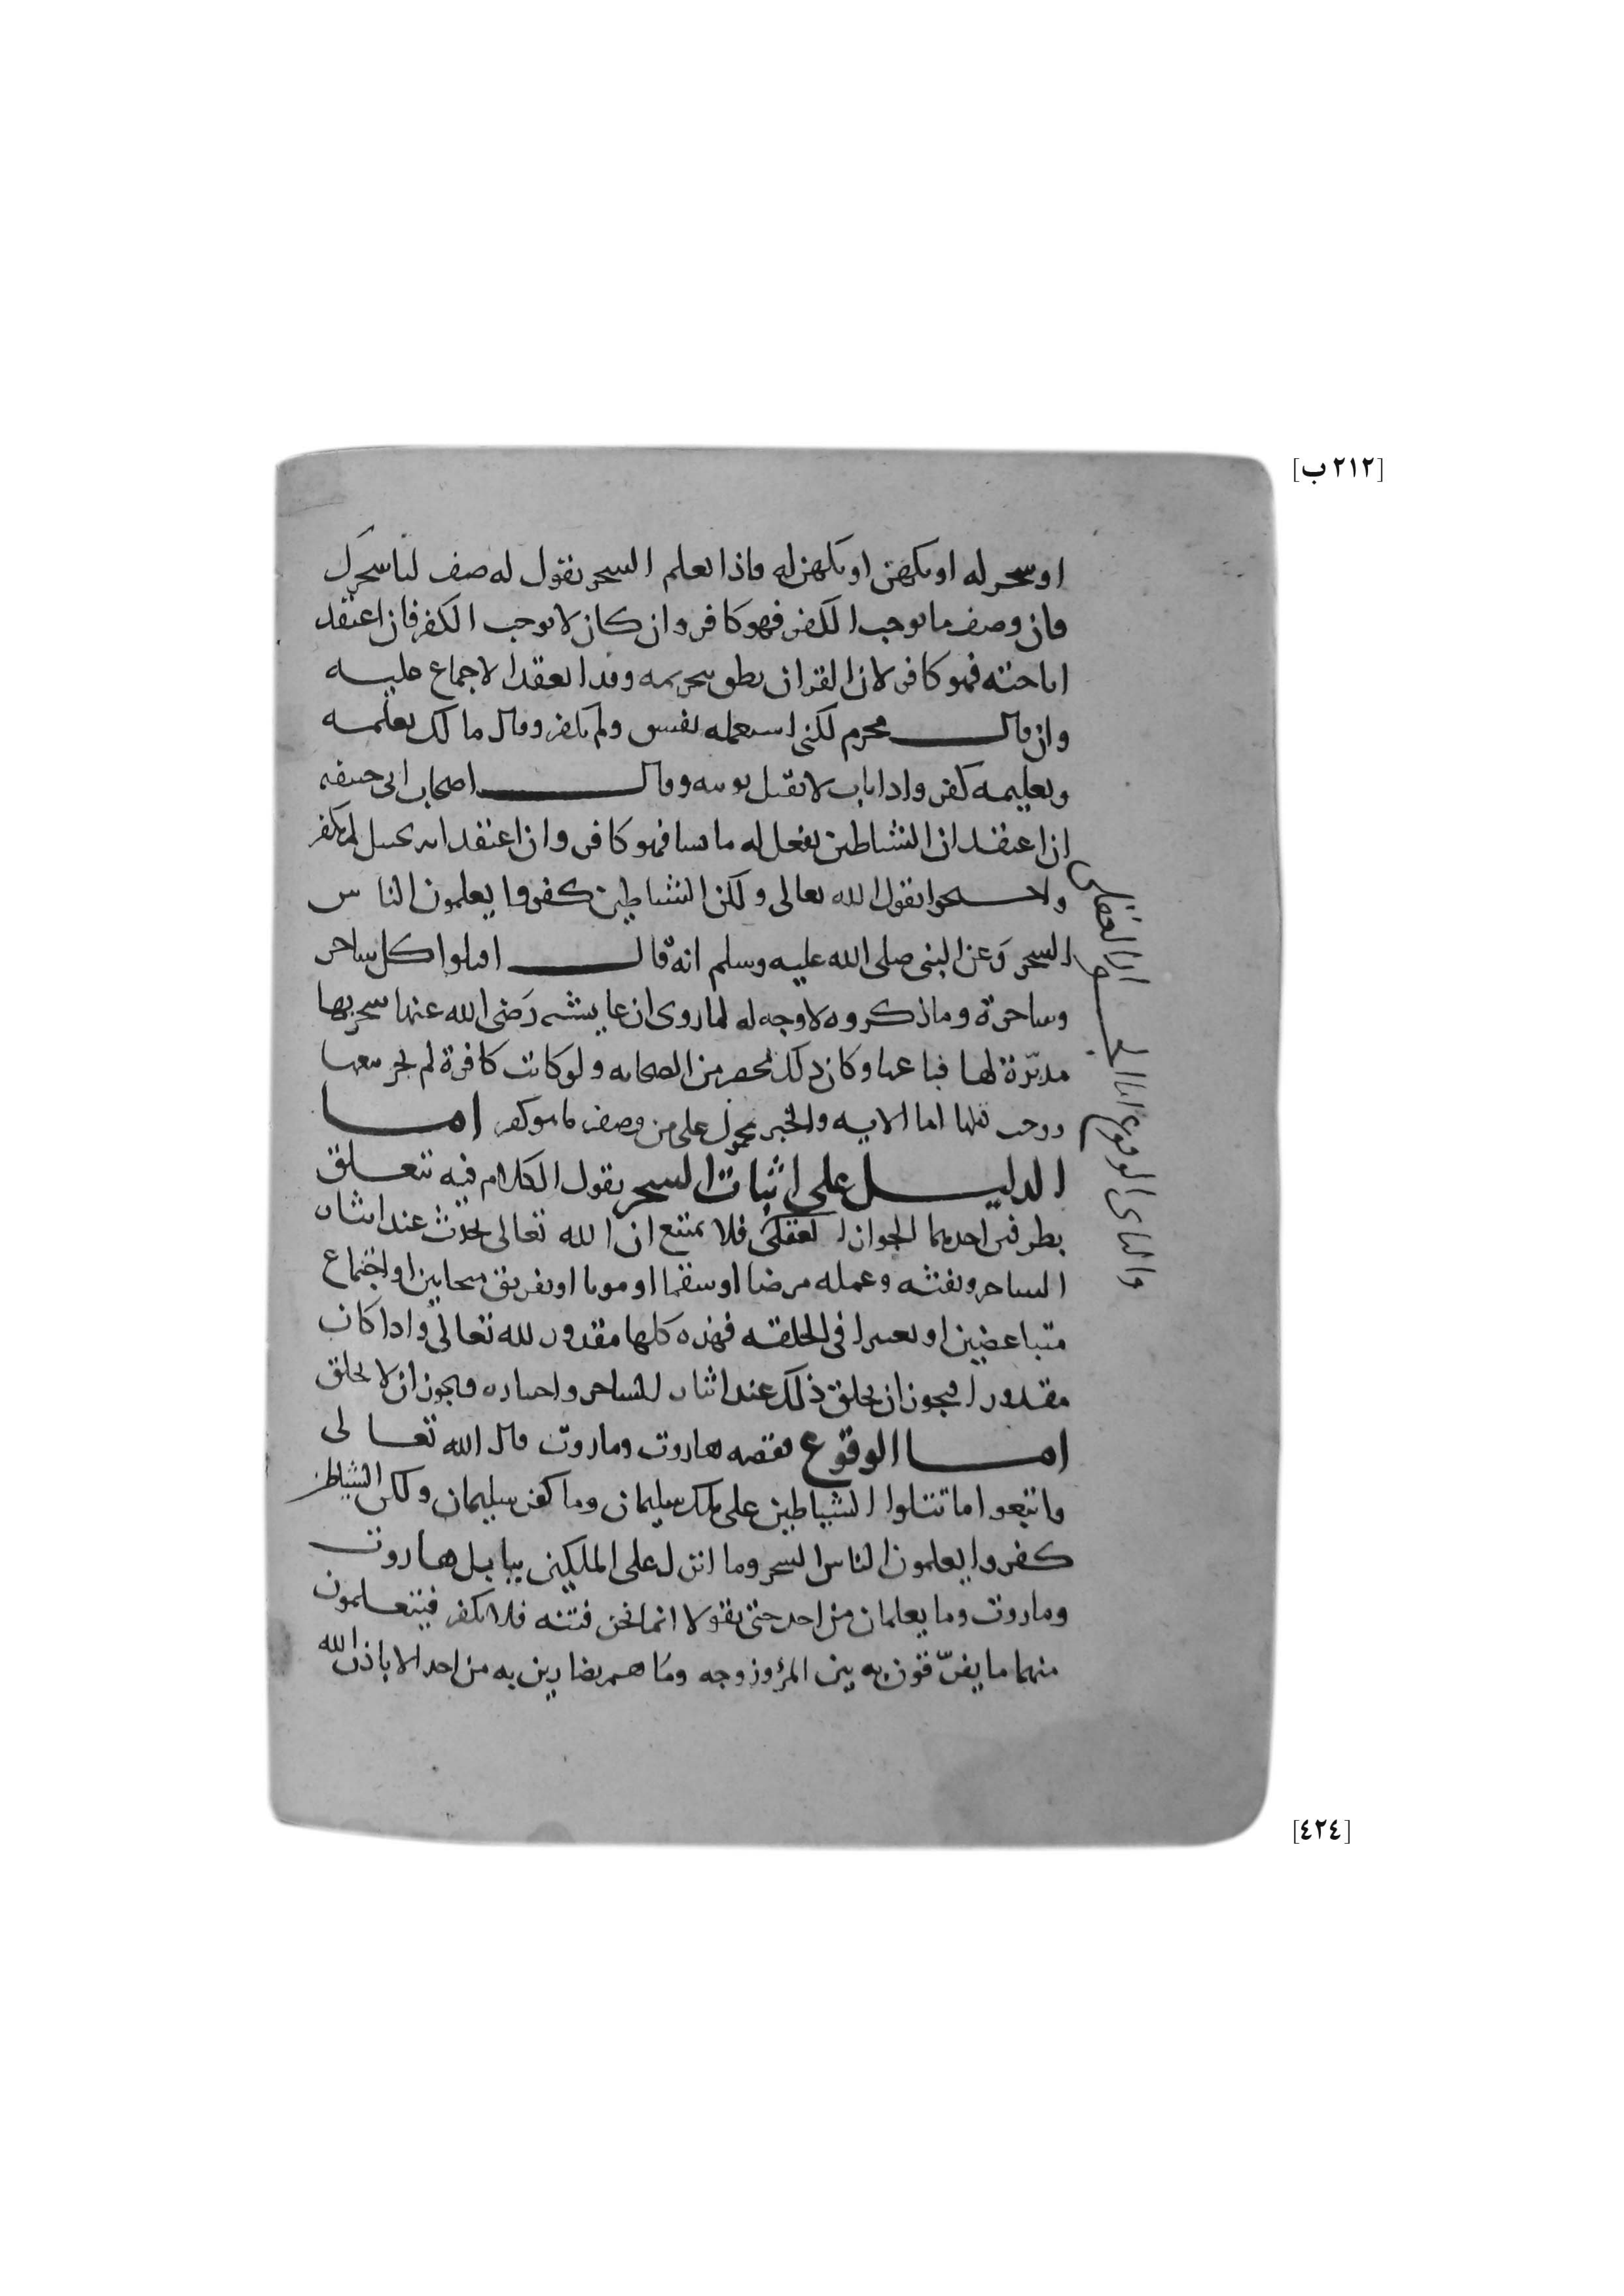 [٢١٢ ب]
او سحر له او تكهن او تكهن له فاذا تعلم السحر نقول له صف لنا سحرك
فان وصف ما يوجب الكفر فهو كافر وان كان لا يوجب الكفر فان اعتقد
اباحته فهو كافر لان القران نطق بتحريمه وقد انعقد الاجماع عليه
وان قال محرم لكني استعمله نفسق ولم يكفر وقال مالك تعلمه
وتعليمه كفر واذا تاب لا تقبل توبته وقال اصحاب ابي حنيفه
ان اعتقد ان الشياطين تفعل له ما يشا فهو كافر وان اعتقد انه تخييل لم يكفر
بقول الله تعالى ولكن الشياطين كفروا يعلمون الناس
السحر وعن النبي صلى الله عليه وسلم انه قال اقتلوا كل ساحر
وساحرة وما ذكروه لا وجه له لما روى ان عايشه رضي الله عنها سحرتها
مدبّرة لها فباعتها وكان ذلك بمحضر من الصحابه ولو كانت كافرة لم يجز بيعها
ووجب قتلها اما الايه والخبر محمول على من وصف ما هو كفر اما
الدليل على اثبات السحر نقول الكلام فيه يتعلق
بطرفين احدهما الجواز العقلي فلا يمتنع ان الله تعالى يحدث عند اشاره
الساحر ونفثه وعمله مرضا او سقما او موتا او تفريق متحابين او اجتماع
متباغضين او تغييرا في الخلقه فهذه كلها مقدور لله تعالى واذا كان
مقدورا فيجوز ان يخلق ذلك عند اشاره الساحر واختياره ويجوز ان لا يخلق
اما الوقوع فقصه هاروت وماروت قال الله تعالى
واتبعوا ما تتلوا الشياطين على ملك سليمان وما كفر سليمان ولكن الشياطين
كفروا يعلمون الناس السحر وما انزل على الملكين ببابل هاروت
وماروت وما يعلمان من احد حتى يقولا انما نحن فتنه فلا تكفر فيتعلمون
منهما ما يفرّقون به بين المرؤ وزوجه وما هم بضارين به من احد الا باذن الله
[٤٢٤]